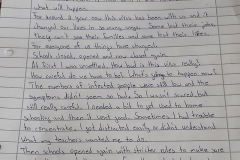 what will happen.
For around a year now this virus has been with us and it
changed our lives in so many ways. Some lost their jobs,
they can't see their families and some lost their lives.
For everyone of us things have changed.
Schools closed, opened and now closed again.
At first I was unsettled, how bad is this virus really?
How careful do we have to be? What's going to happen now?
The numbers of infected people were still low and the
symptoms didn't seem so bad. I wasn't scared but
still really careful. I needed a bit to get used to home
schooling and then it went good. Sometimes I had trouble
to concentrate. I got distracted easily or didn't understand
what my teachers wanted me to do.
Then schools opened again with stricter rules to make sure